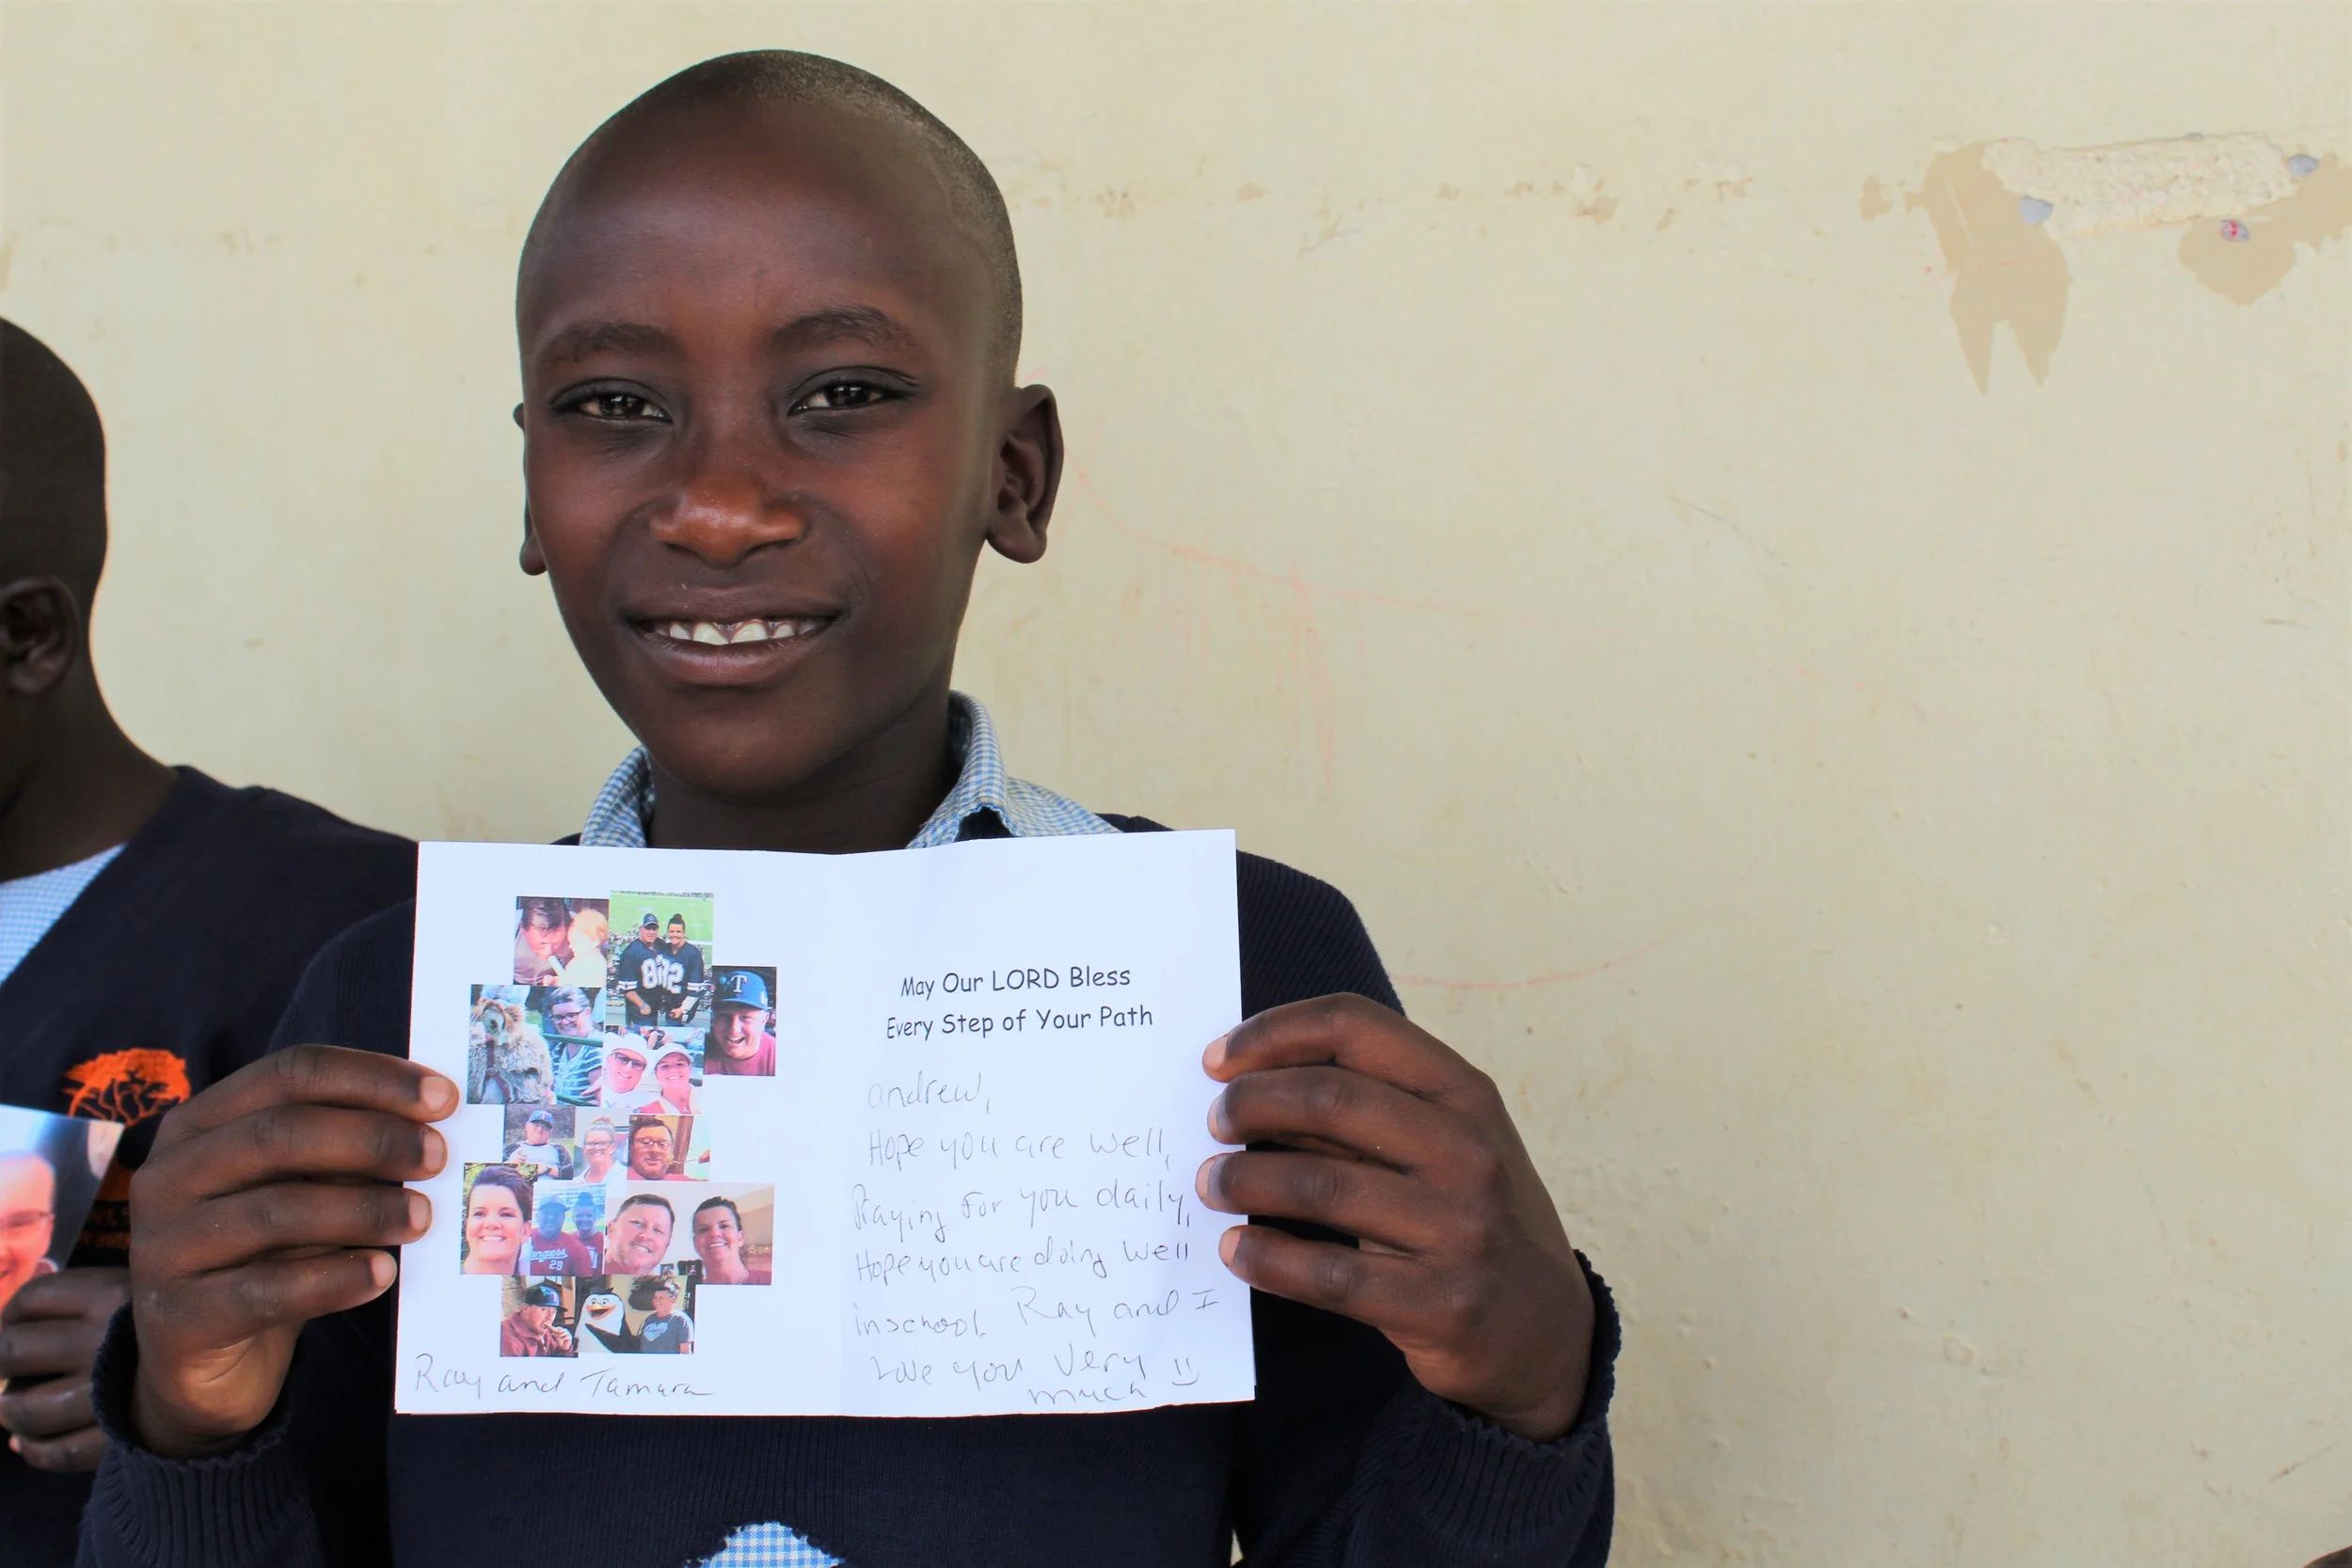 May Our LORD Bless
Every Step of Your Path
andrew,
Hope you are well,
Praying for you daily,
Hope you are doing well
in school. Ray and I
Love you Very
much
Ray and Tamara
882
T
Rangers
29